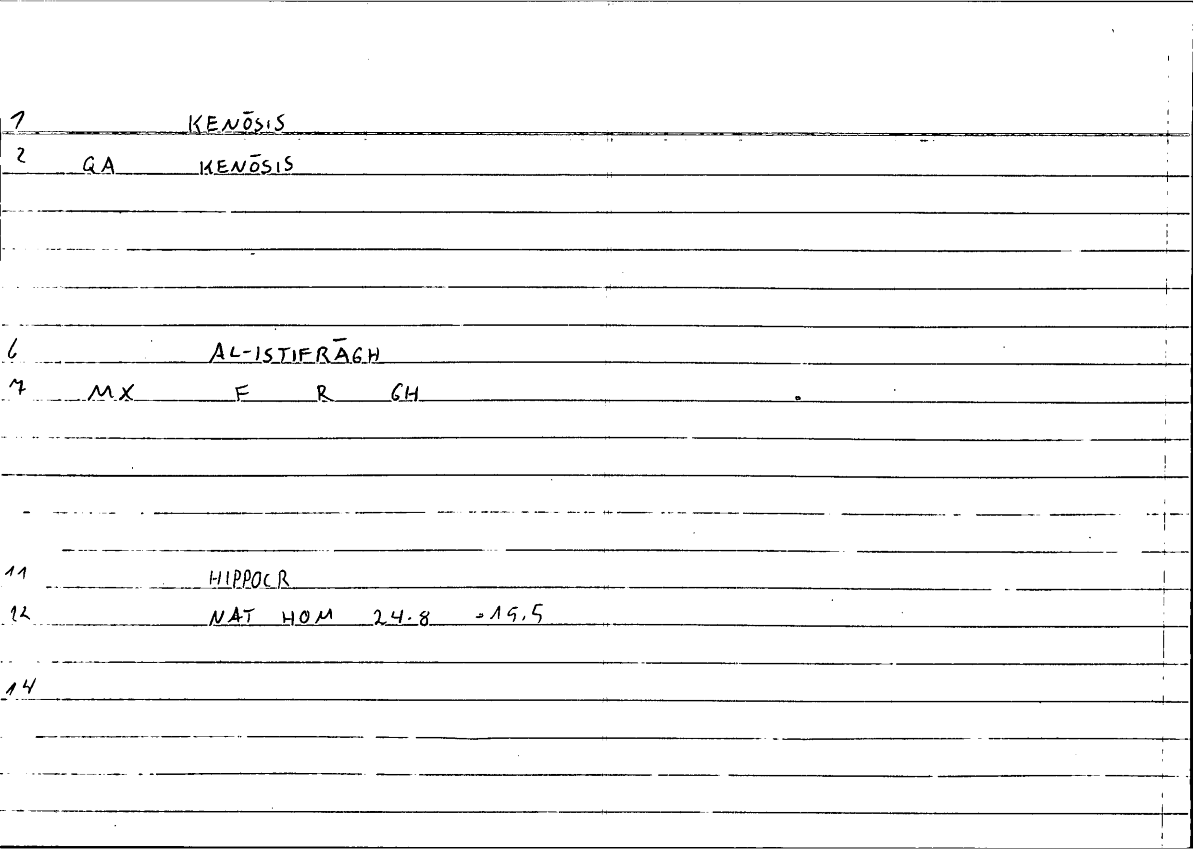 1 KENŌSIS
2 GA KENŌSIS
6 AL-ISTIFRĀGH
7 MX F R GH
11 HIPPOCR
12 NAT HOM 24.8 =15.5
14